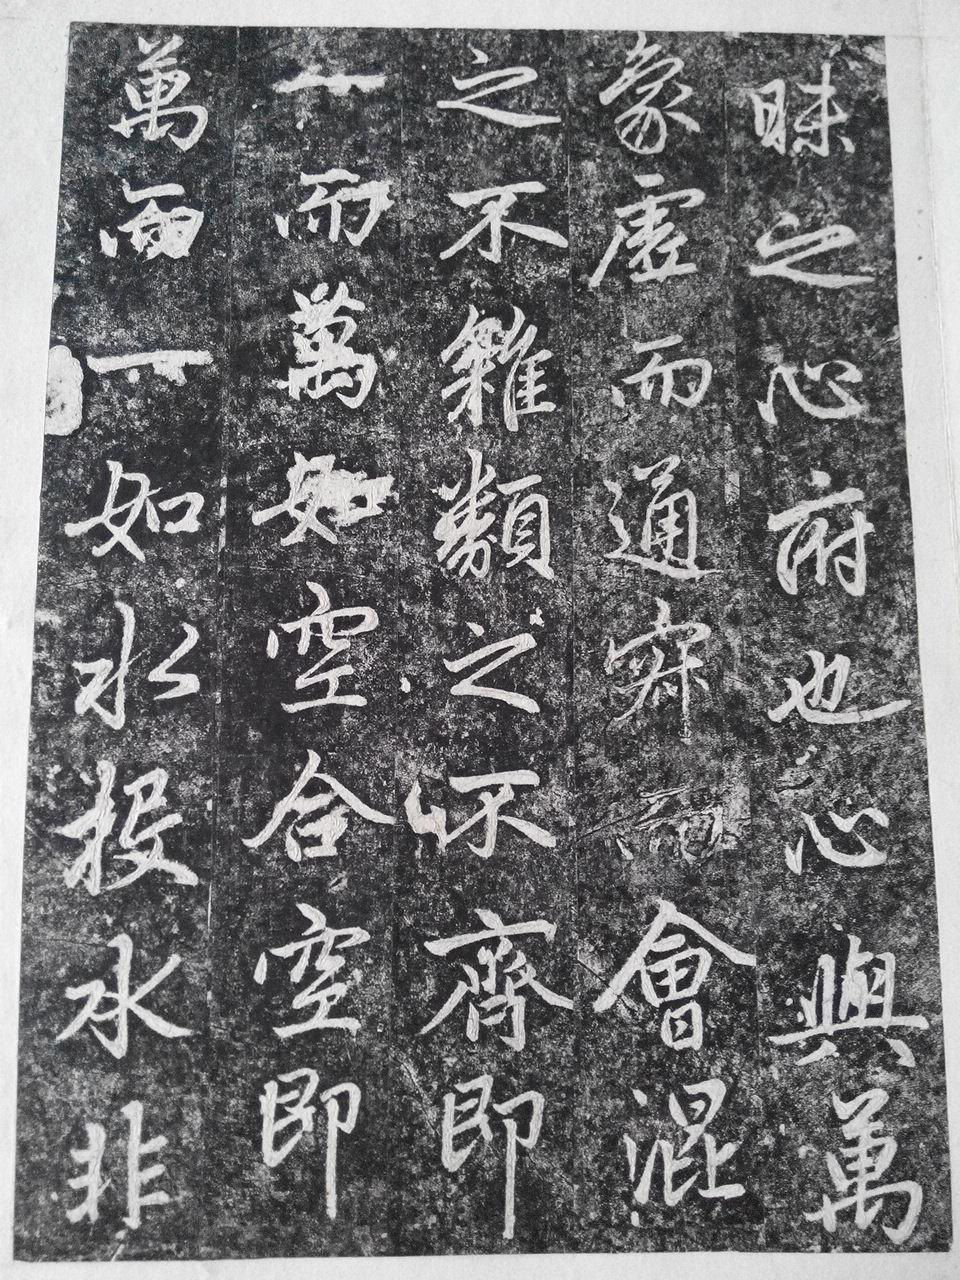 昧之心府也心與萬
象虛而通寂而會混
之不雜類之不齊即
一而萬如空合空即
萬而一如水投水非